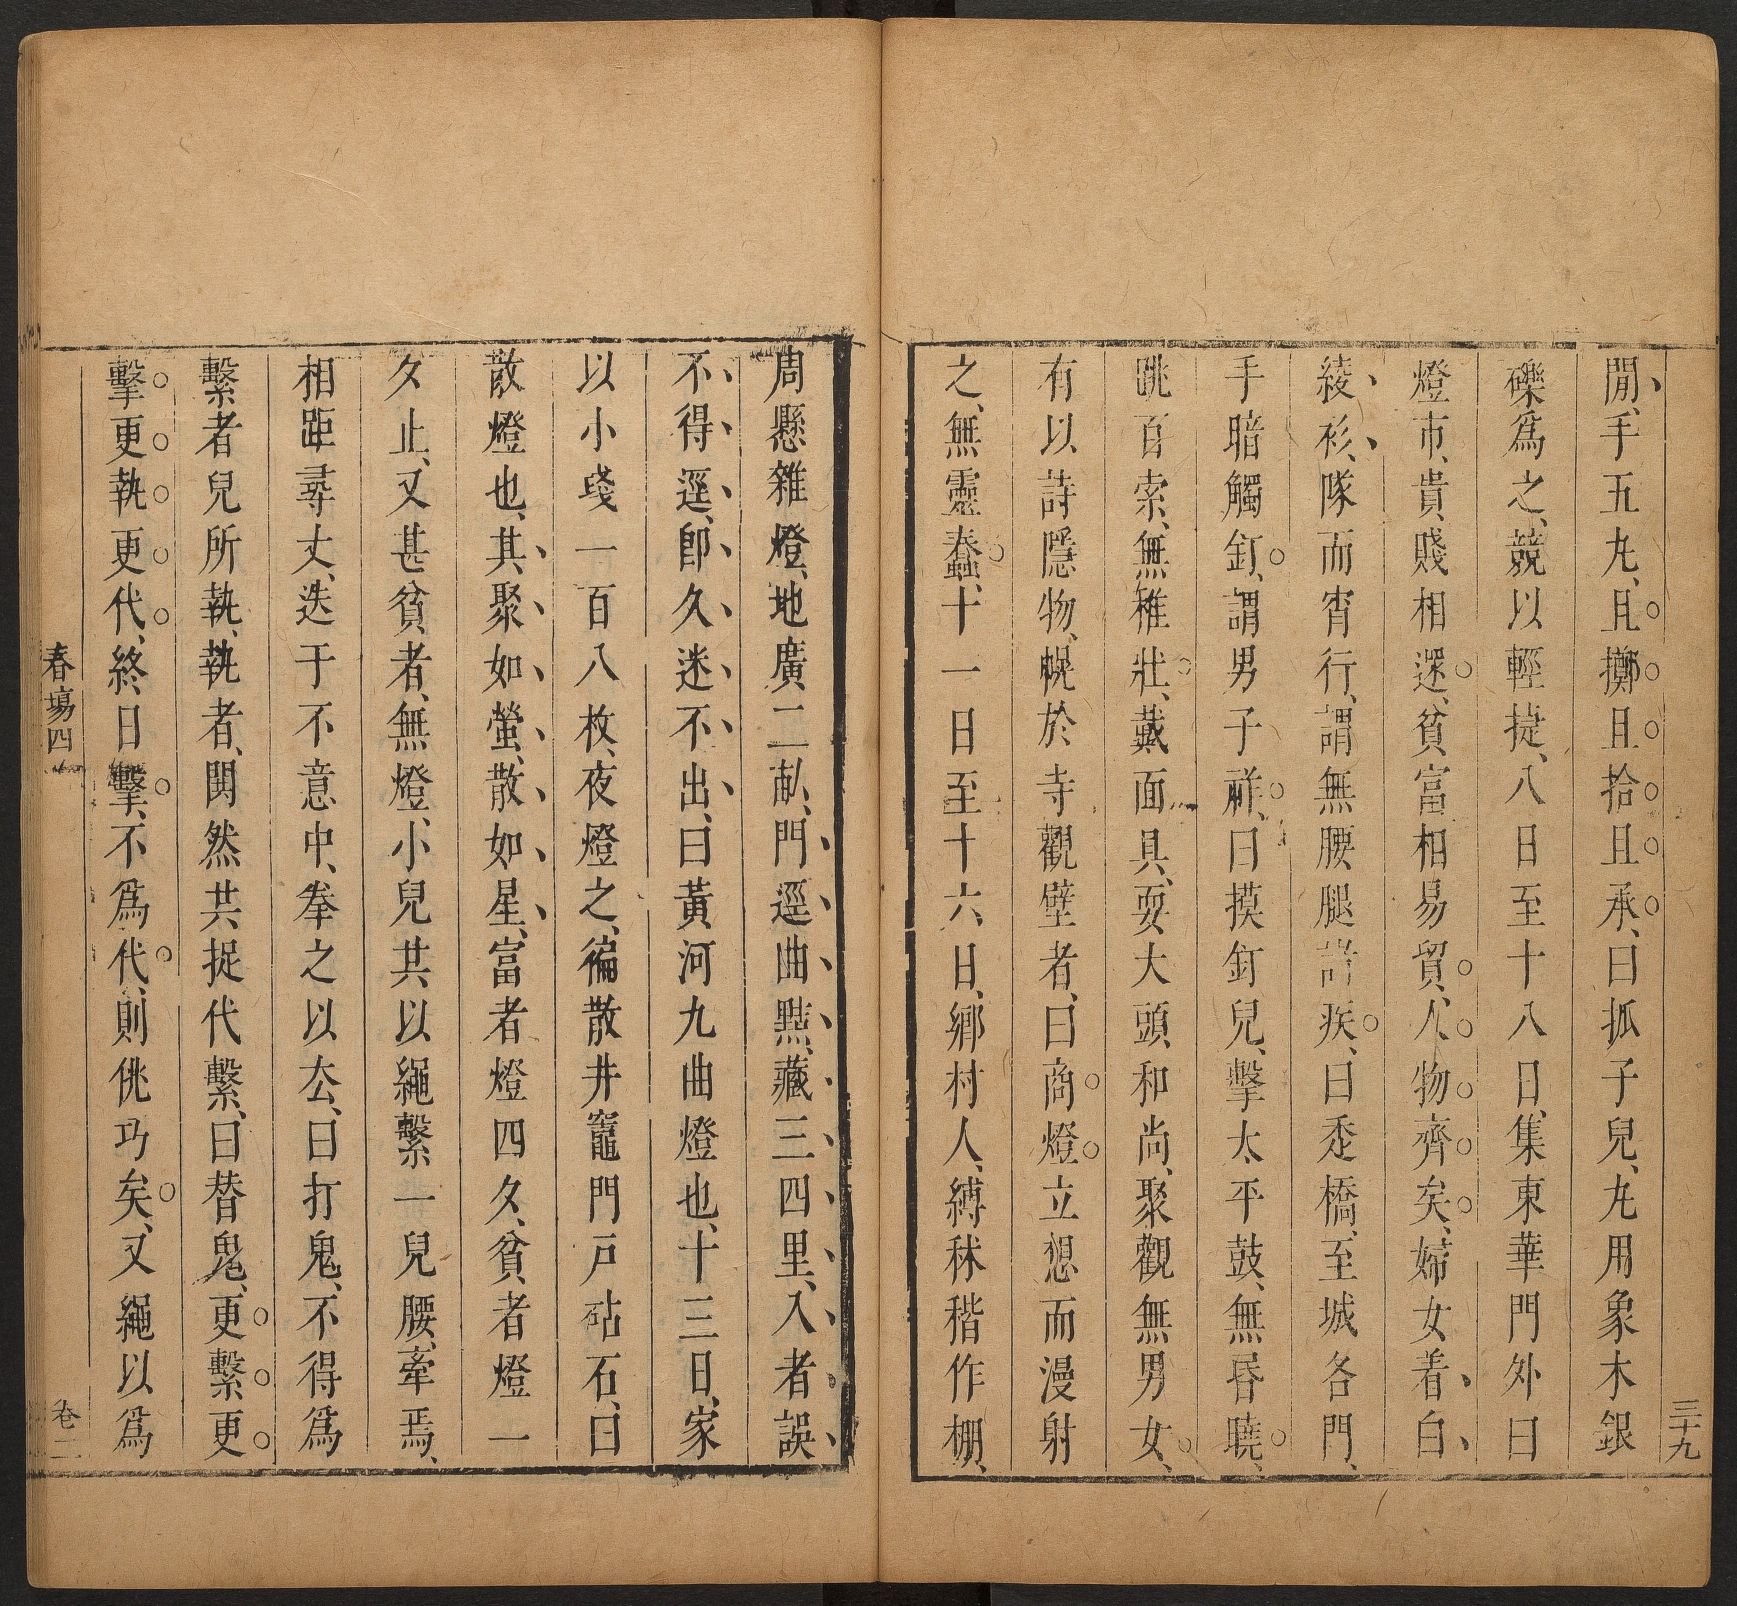 三十九
閒、手五丸、且擲且拾且承、曰抓子兒、丸用象木銀
礫爲之、競以輕捷、八日至十八日、集東華門外曰
燈市、貴賤相遝、貧富相易貿、人物齊矣、婦女着白
綾衫、隊而宵行、謂無腰腿諸疾、曰走橋、至城各門、
手暗觸釘、謂男子祥、曰摸釘兒、擊太平鼓、無昏曉、
跳百索、無稚壯、戴面具、耍大頭和尚、聚觀無男女、
有以詩隱物、幌於寺觀壁者、曰商燈、立想而漫射
之、無靈蠢、十一日至十六日、鄉村人、縛秫稭作棚、
周懸雜燈、地廣二畝、門逕曲黠、藏三四里、入者誤
不得逕、卽久迷不出、曰黃河九曲燈也、十三日、家
以小琖一百八枚、夜燈之、徧散井竈門戸砧石、曰
散燈也、其聚如螢、散如星、富者燈四夕、貧者燈一
夕止、又甚貧者、無燈、小兒共以繩繫一兒腰、牽焉、
相距尋丈、迭于不意中、拳之以去、曰打鬼、不得爲
繫者兒所執、執者、鬨然共捉代繫、曰替鬼、更繫更
擊、更執更代、終日擊、不爲代、則佻巧矣、又繩以爲
春場四
卷二